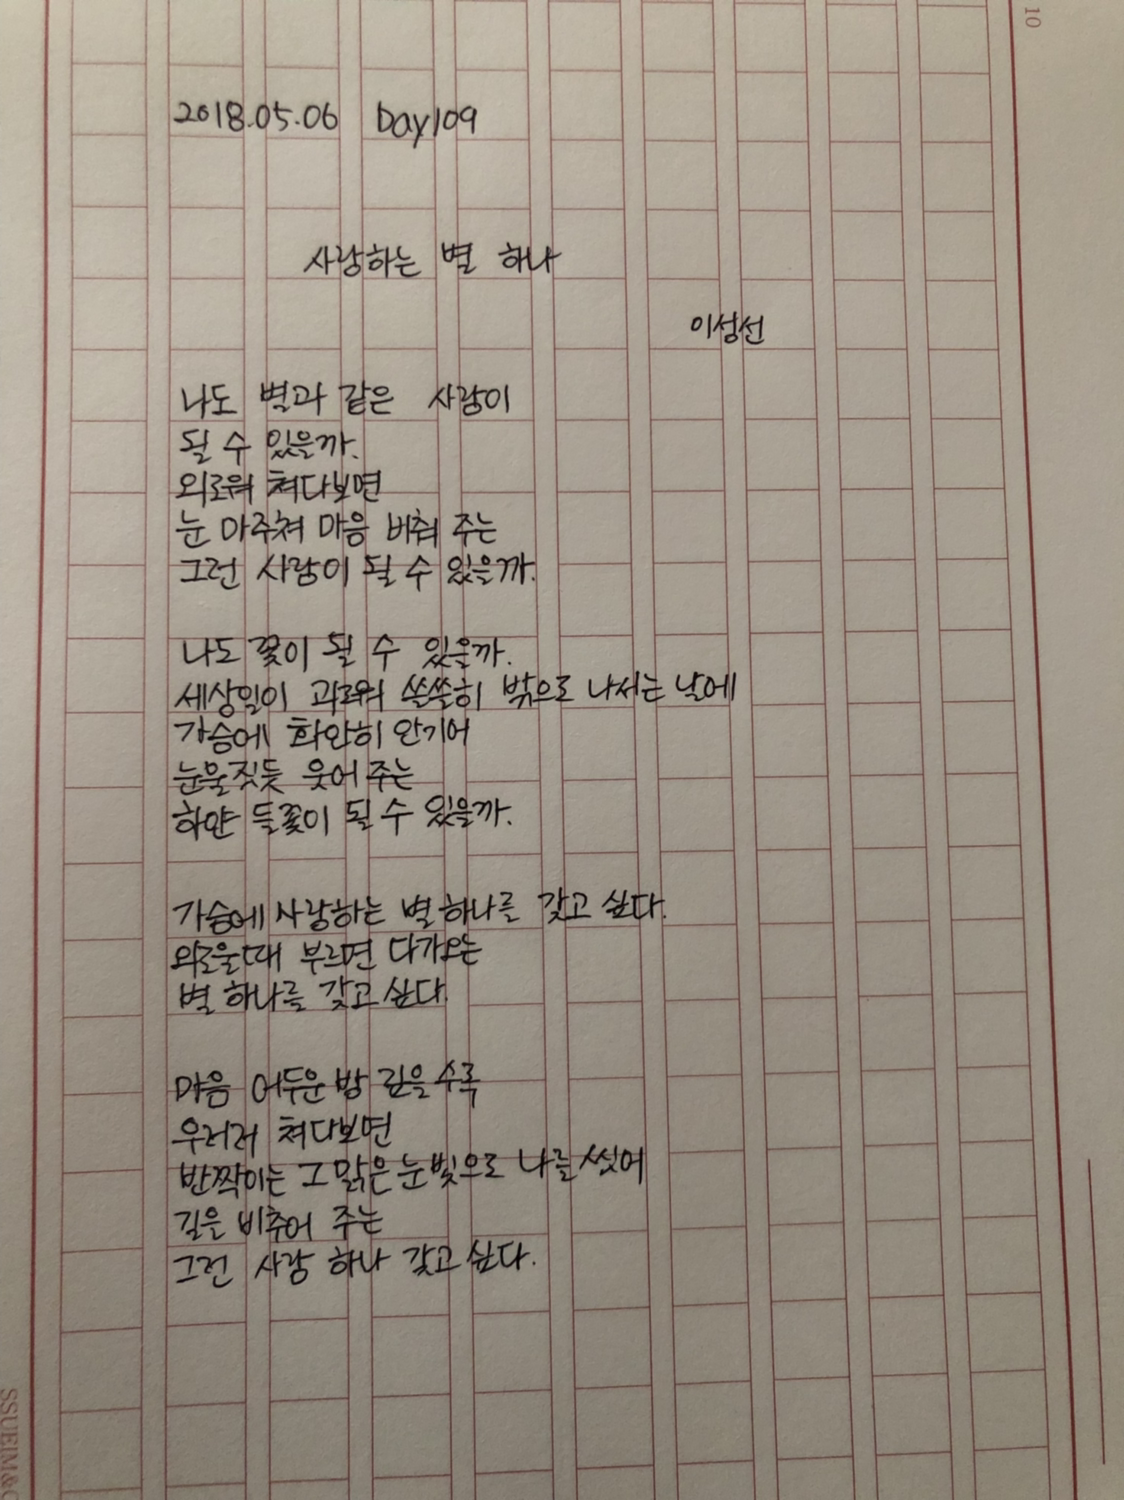 10
2018.05.06 Day109
사랑하는 별 하나
이성선
나도 별과 같은 사람이
될 수 있을까.
외로워 쳐다보면
눈 마주쳐 마음 비춰 주는
그런 사람이 될 수 있을까.
나도 꽃이 될 수 있을까.
세상일이 괴로워 쓸쓸히 밖으로 나서는 날에
가슴에 화안히 안기어
눈물짓듯 웃어 주는
하얀 들꽃이 될 수 있을까.
가슴에 사랑하는 별 하나를 갖고 싶다.
외로울때 부르면 다가오는
별 하나를 갖고 싶다.
마음 어두운 밤 깊을수록
우러러 쳐다보면
반짝이는 그 맑은 눈빛으로 나를 씻어
길을 비추어 주는
그런 사랑 하나 갖고 싶다.